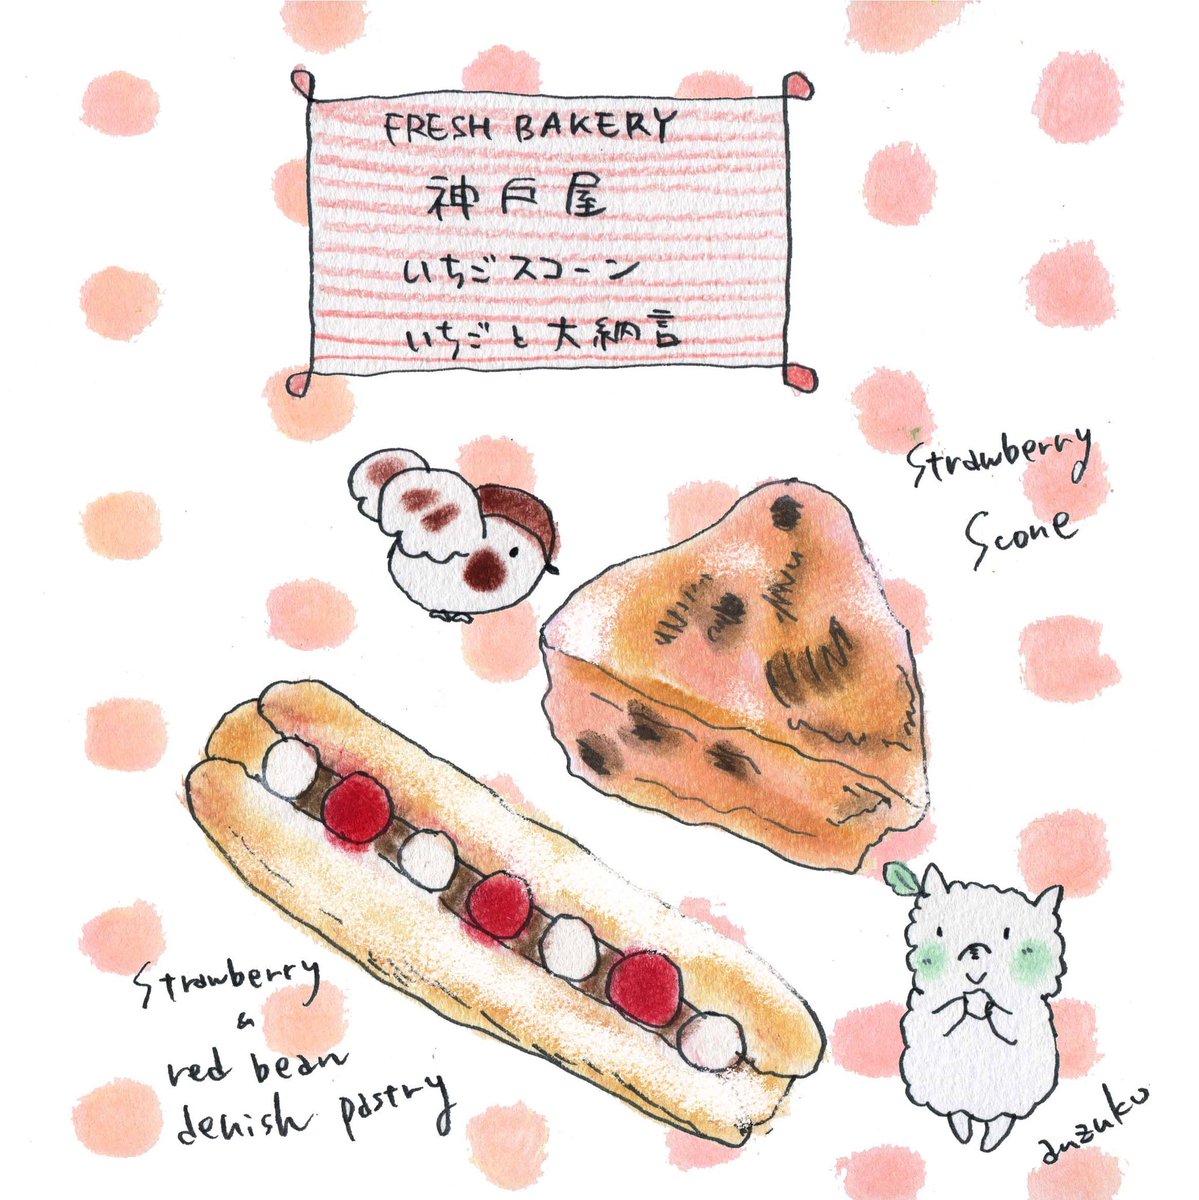 FRESH BAKERY
神戸屋
いちごスコーン
いちごと大納言
Strawberry
Scone
Strawberry
&
red bean
denish pastry
anzuko